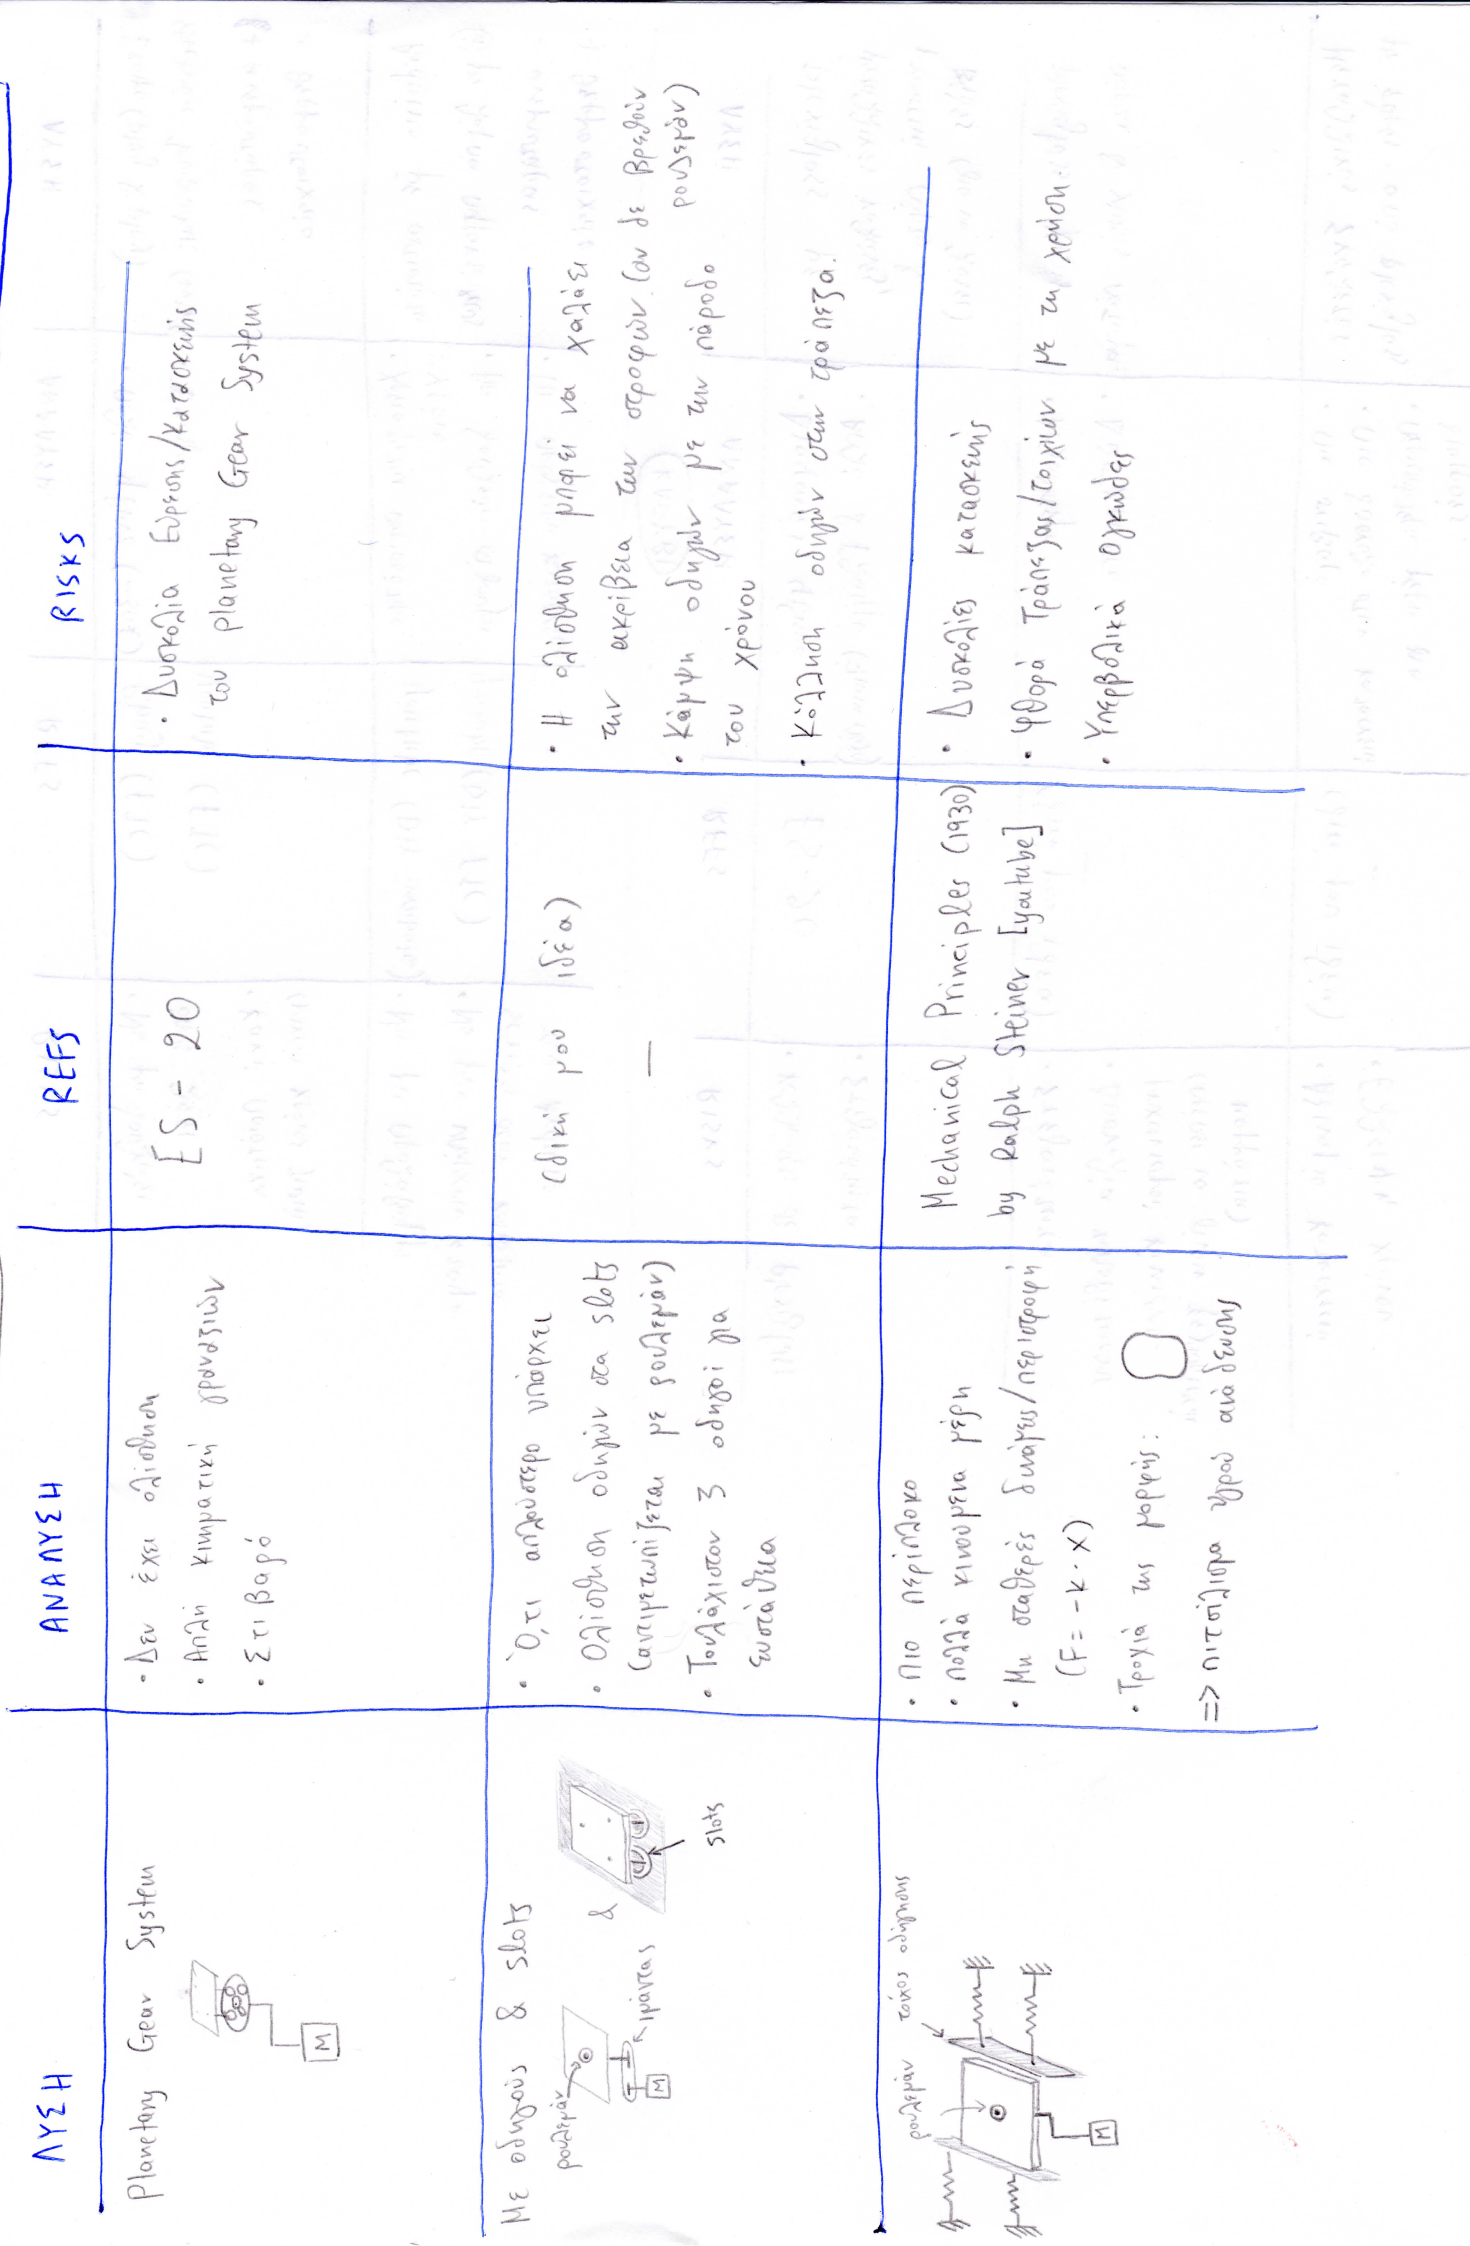 ΛΥΣΗ
ΑΝΑΛΥΣΗ
REFS
RISKS
Planetary Gear System
M
• Δεν έχει ολίσθηση
• Απλή κινηματική γραναζιών
• Στιβαρό
ES - 20
• Δυσκολία Εύρεσης/κατασκευής
του Planetary Gear System
Με οδηγούς & slots
ρουλεμάν
M
ιμάντας
&
slots
• Ό,τι απλούστερο υπάρχει
• Ολίσθηση οδηγών στα slots
(αντιμετωπίζεται με ρουλεμάν)
• Τουλάχιστον 3 οδηγοί για
ευστάθεια
(δική μου ιδέα)
—
• Η ολίσθηση μπορεί να χαλάει
την ακρίβεια των στροφών. (αν δε βρεθούν
ρουλεμάν)
• Κάμψη οδηγών με την πάροδο
του χρόνου
• Κόλληση οδηγών στην τράπεζα.
ρουλεμάν
τοίχος οδήγησης
M
• Πιο περίπλοκο
• Πολλά κινούμενα μέρη
• Μη σταθερές δυνάμεις/περιστροφή
(F = -k · x)
• Τροχιά της μορφής:
=> πιτσίλισμα υγρού ανάδευσης
Mechanical Principles (1930)
by Ralph Steiner [youtube]
• Δυσκολίες κατασκευής
• Φθορά Τράπεζας/τοιχίων με τη χρήση.
• Υπερβολικά ογκώδες